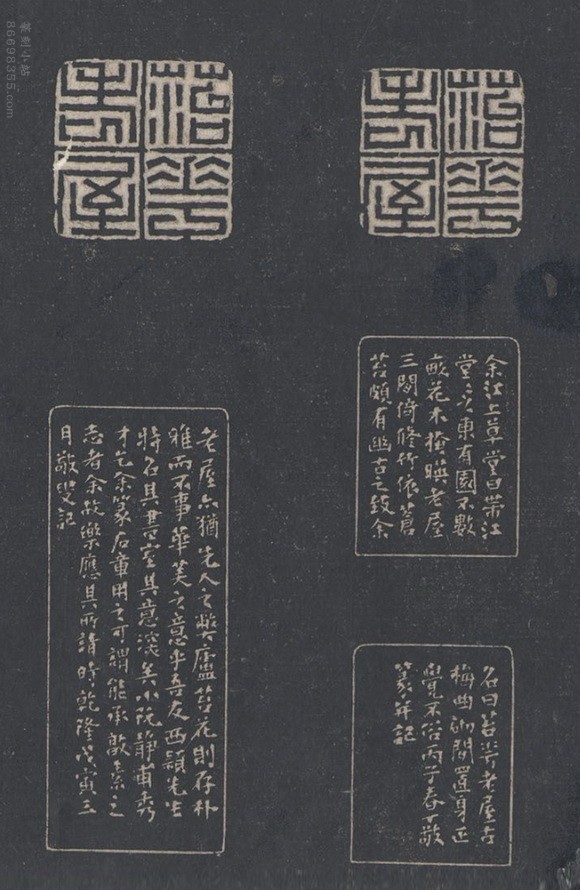 苔花
老屋
余江上草堂曰帶江
堂々之東有園不數
畝花木掩映老屋
三間倚修竹依蒼
苔頗有幽古之致余
名曰苔花老屋古
梅曲砌間置身正
覺不俗丙子春丁敬
篆并記
苔花
老屋
老屋亦猶先人之弊廬苔花則存朴
雅而不事華美之意乎吾友西穎先生
將名其書室其意深矣小阮靜甫秀
才乞余篆石章用之可謂能承敦素之
志者余故樂應其所請時乾隆戊寅三
月敬叟記
篆刻小站
86698355.com